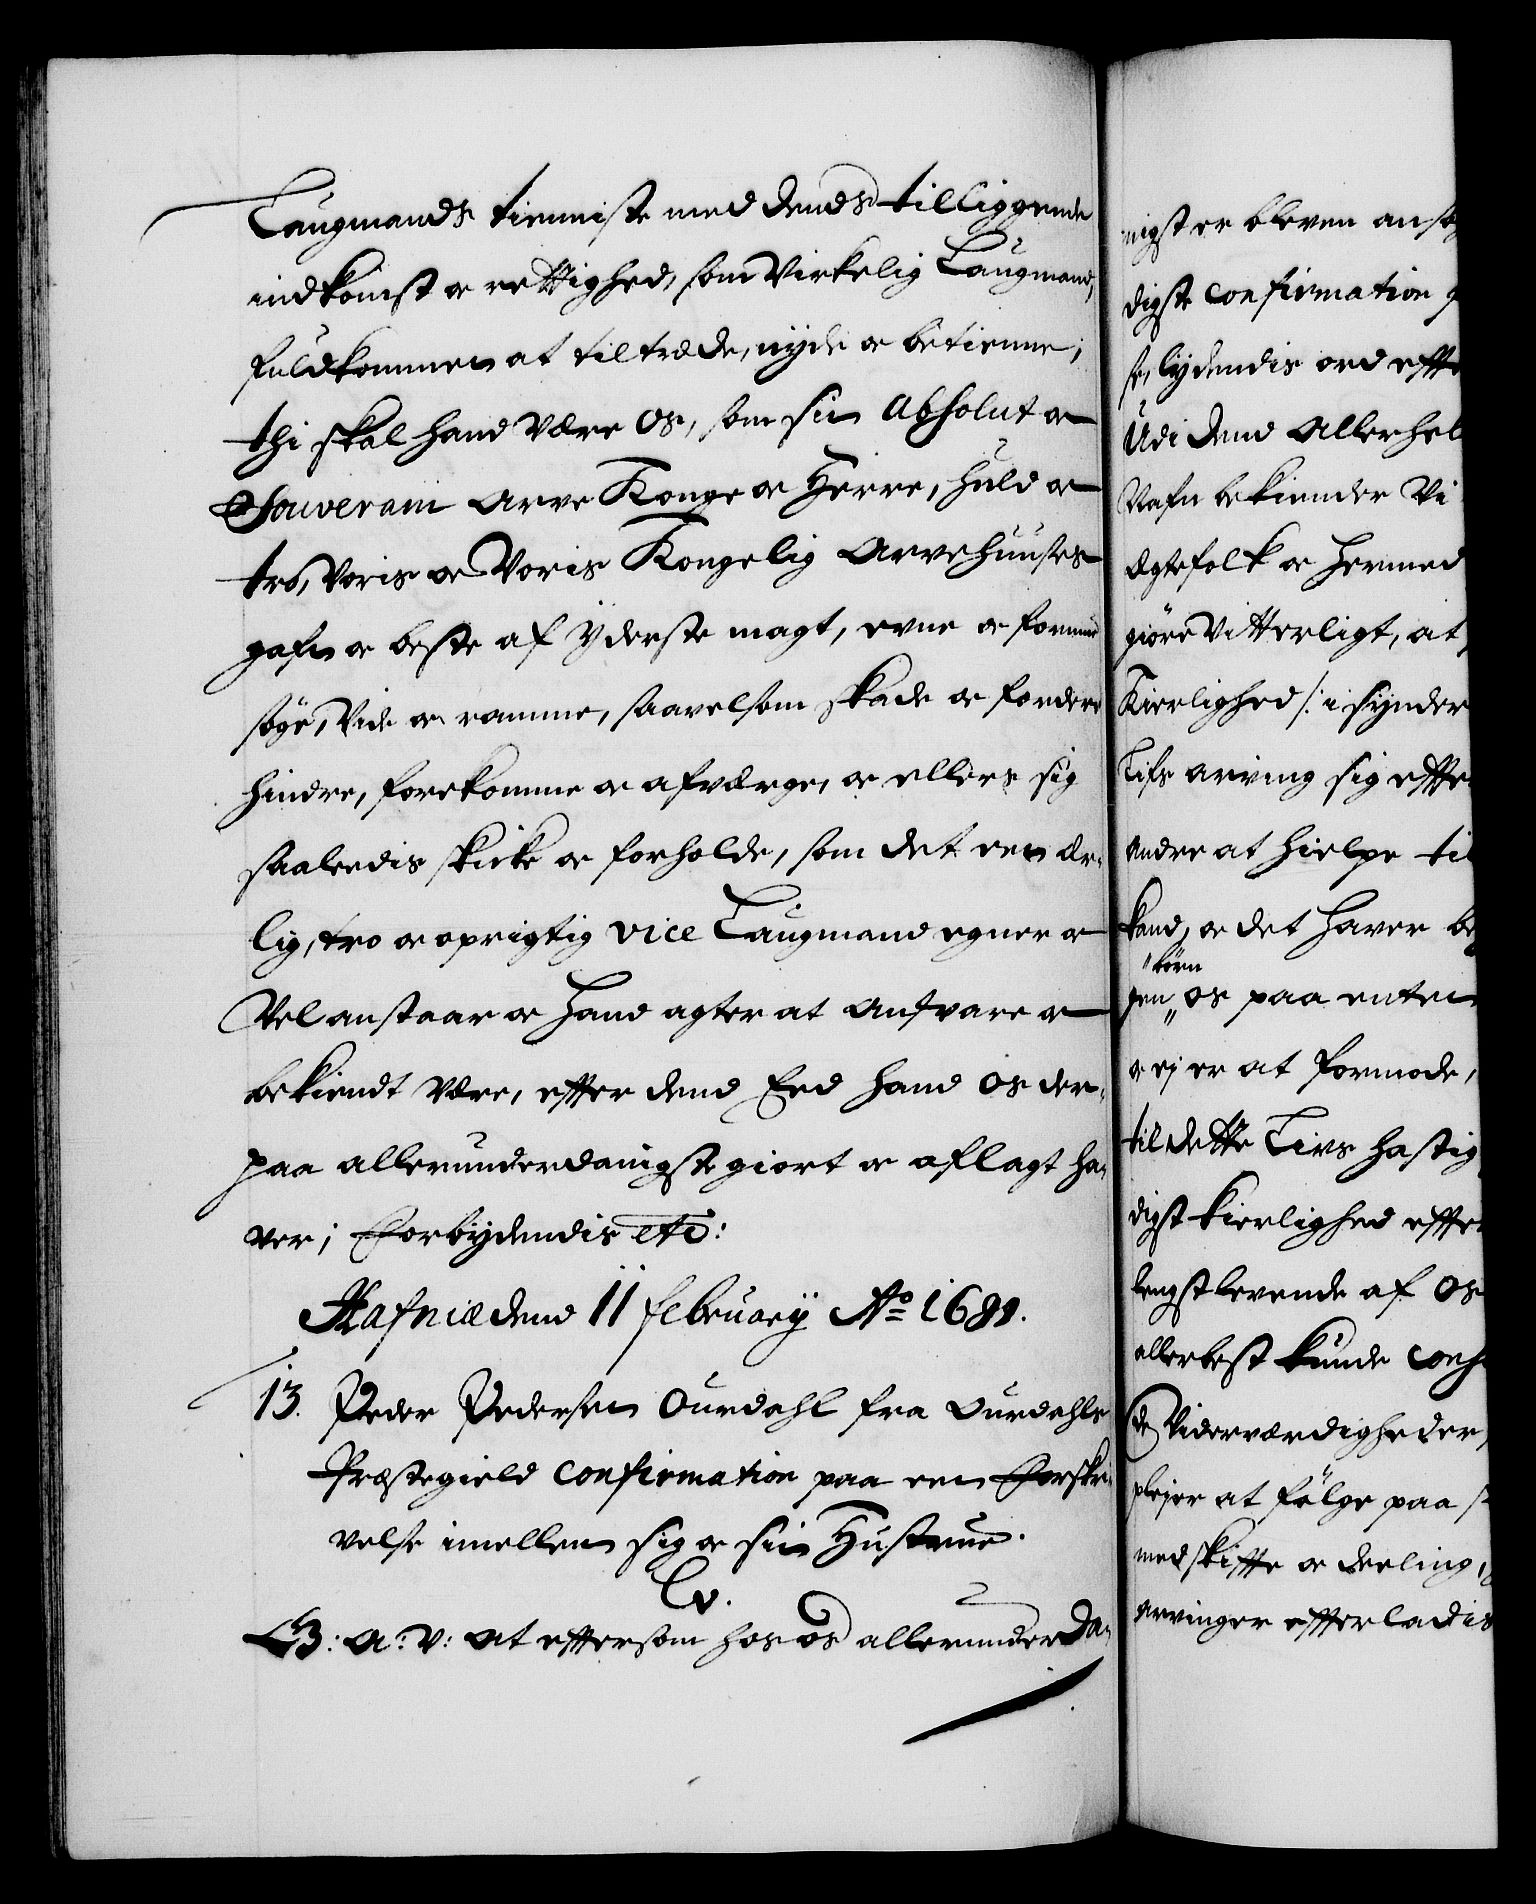 Laugmands tienniste med dends tilliggende
indkomst oc rettighed, som Virkelig Laugmand,
fuldkommen at tiltræde, nyde oc betienne;
thi skal hand være Os, som sin Absolut oc
Souverain Arve Konge oc Herre, huld oc
tro, Voris oc Voris Kongelig Arvehuuses
gafn oc beste af Yderste magt, evne oc formue
søge, Vide oc ramme, saavelsom skade oc fordere
hindre, forekomme oc afværge, oc ellers sig
saaleedis skicke oc forholde, som det een ær-
lig, tro oc oprigtig vice Laugmand egner oc
Vel anstaar oc hand agter at Andsvare oc
bekiendt være, effter dend Eed hand Os der-
paa allerunderdanigste giort oc aflagt ha-
ver; Forbydendis etc:
Hafniæ dend 11 februarij Ao 1689.
13. Peder Pedersen Ourdahl fra Ourdahls
Præstegield confirmation paa een Forskri-
velse imellem sig oc sin Hustrue.
Cv.
C3: A: V: At effersom hos os allerunderda-
nigst er bleven ansøg
digste confirmation p
se, lydendis ord effte
Udi dend Allerhel
Nafn bekiender Vi
ægtefolk oc hermed
giøre Vitterligt, at
Kierlighed /: i synder
Lifs arving sig effte
andre at hielpe til
kand, oc det haver be
børn
gen os paa enten
oc ej er at formode,
til dette Livs hastig
digst kierlighed effte
lengstlevende af Os
allerbest kunde cons
de Viderværdigheder,
plejer at følge paa
med skiffte oc deeling,
arvinger efferladis